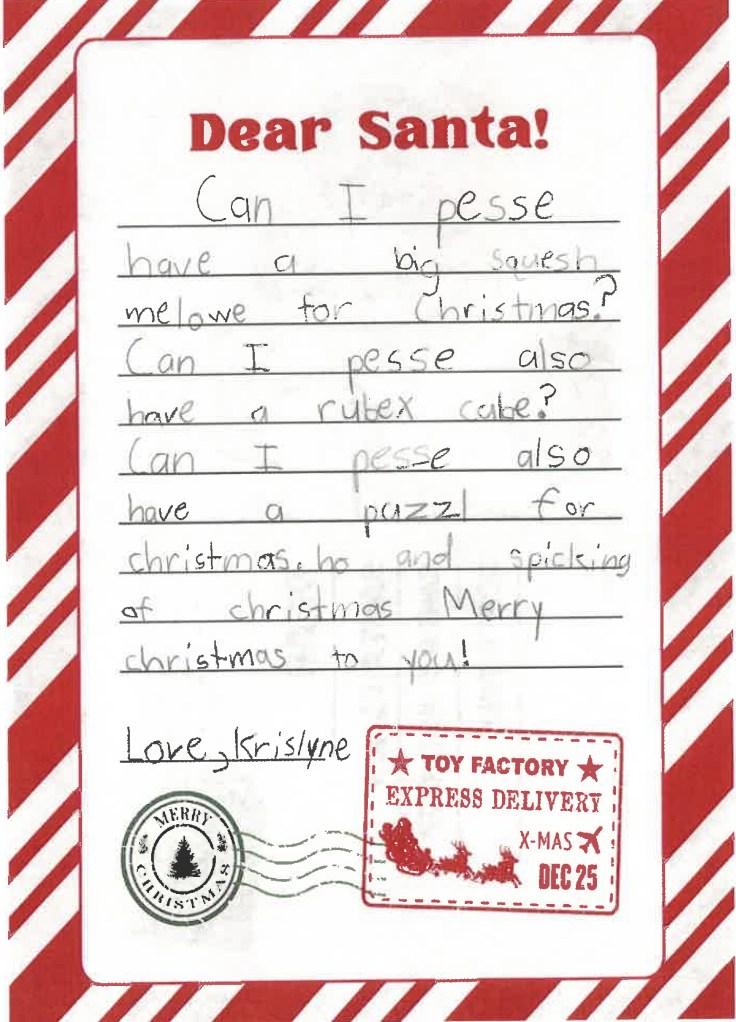 Dear Santa!
Can I pesse
have a big squesh
melowe for Christmas?
Can I pesse also
have a rubex cube?
Can I pesse also
have a puzzl for
christmas. ho and spicking
of christmas Merry
christmas to you!
Love, Krislyne
TOY FACTORY
EXPRESS DELIVERY
X-MAS
DEC 25
MERRY
CHRISTMAS